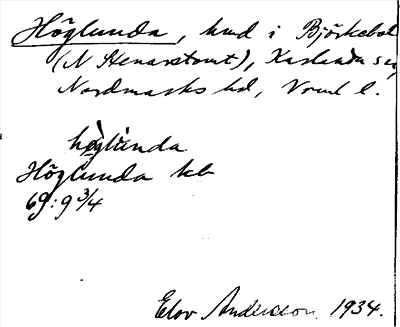 Höglunda, hmd i Björkebol
(N Stenarstomt), Karlanda sn,
Nordmarks hd, Vrml l.
höglùnda
Höglunda kb
69:9 3/4
Elov Andersson 1934.